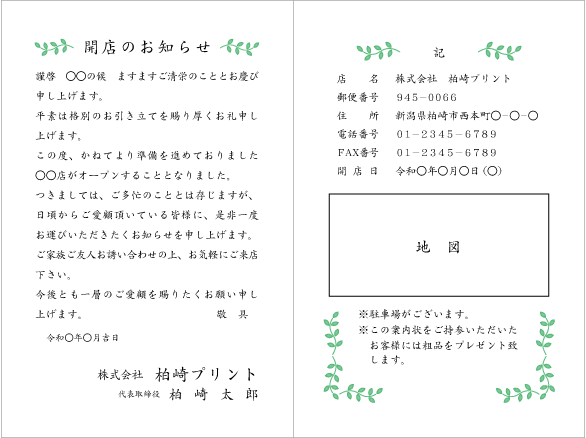 開店のお知らせ
謹啓　〇〇の候　ますますご清栄のこととお慶び
申し上げます。
平素は格別のお引き立てを賜り厚くお礼申し
上げます。
この度、かねてより準備を進めておりました
〇〇店がオープンすることとなりました。
つきましては、ご多忙のこととは存じますが、
日頃からご愛顧頂いている皆様に、是非一度
お運びいただきたくお知らせを申し上げます。
ご家族ご友人お誘い合わせの上、お気軽にご来店
下さい。
今後とも一層のご愛顧を賜りたくお願い申し
上げます。　敬　具
令和〇年〇月吉日
株式会社　柏崎プリント
代表取締役　柏　崎　太　郎
記
店　名　株式会社　柏崎プリント
郵便番号　945-0066
住　所　新潟県柏崎市西本町〇-〇-〇
電話番号　01-2345-6789
FAX番号　01-2345-6789
開 店 日　令和〇年〇月〇日(〇)
地　図
※駐車場がございます。
※この案内状をご持参いただいた
お客様には粗品をプレゼント致
します。